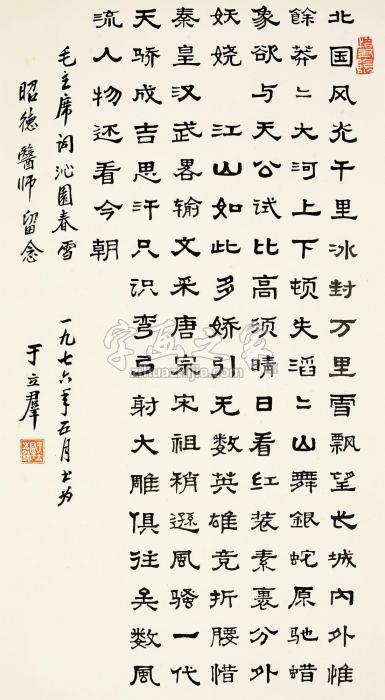 北国风光千里冰封万里雪飘望长城内外惟
餘莽〻大河上下顿失滔〻山舞銀蛇原驰蜡
象欲与天公试比高须晴日看红装素裹分外
妖娆 江山如此多娇引无数英雄竞折腰惜
秦皇汉武畧输文采唐宗宋祖稍遜風骚一代
天骄成吉思汗只识弯弓射大雕俱往矣数風
流人物还看今朝
毛主席词沁園春雪 一九七六年五月书为
昭德醫师留念 于立羣
字画之家